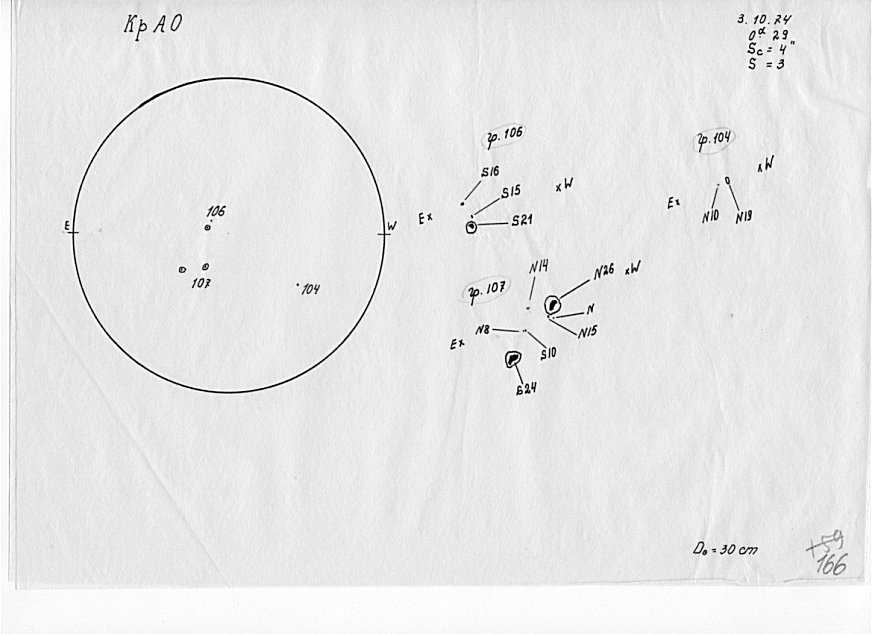 Кр АО
3.10.24
0ᵈ 29
Sc = 4"
S = 3
E
W
106
107
104
гр. 106
S16
S15
S21
Ex
xW
гр. 104
Ex
xW
N10
N19
гр. 107
N14
N26
xW
N
N15
N8
Ex
S10
S24
D₀ = 30 cm
+59
166